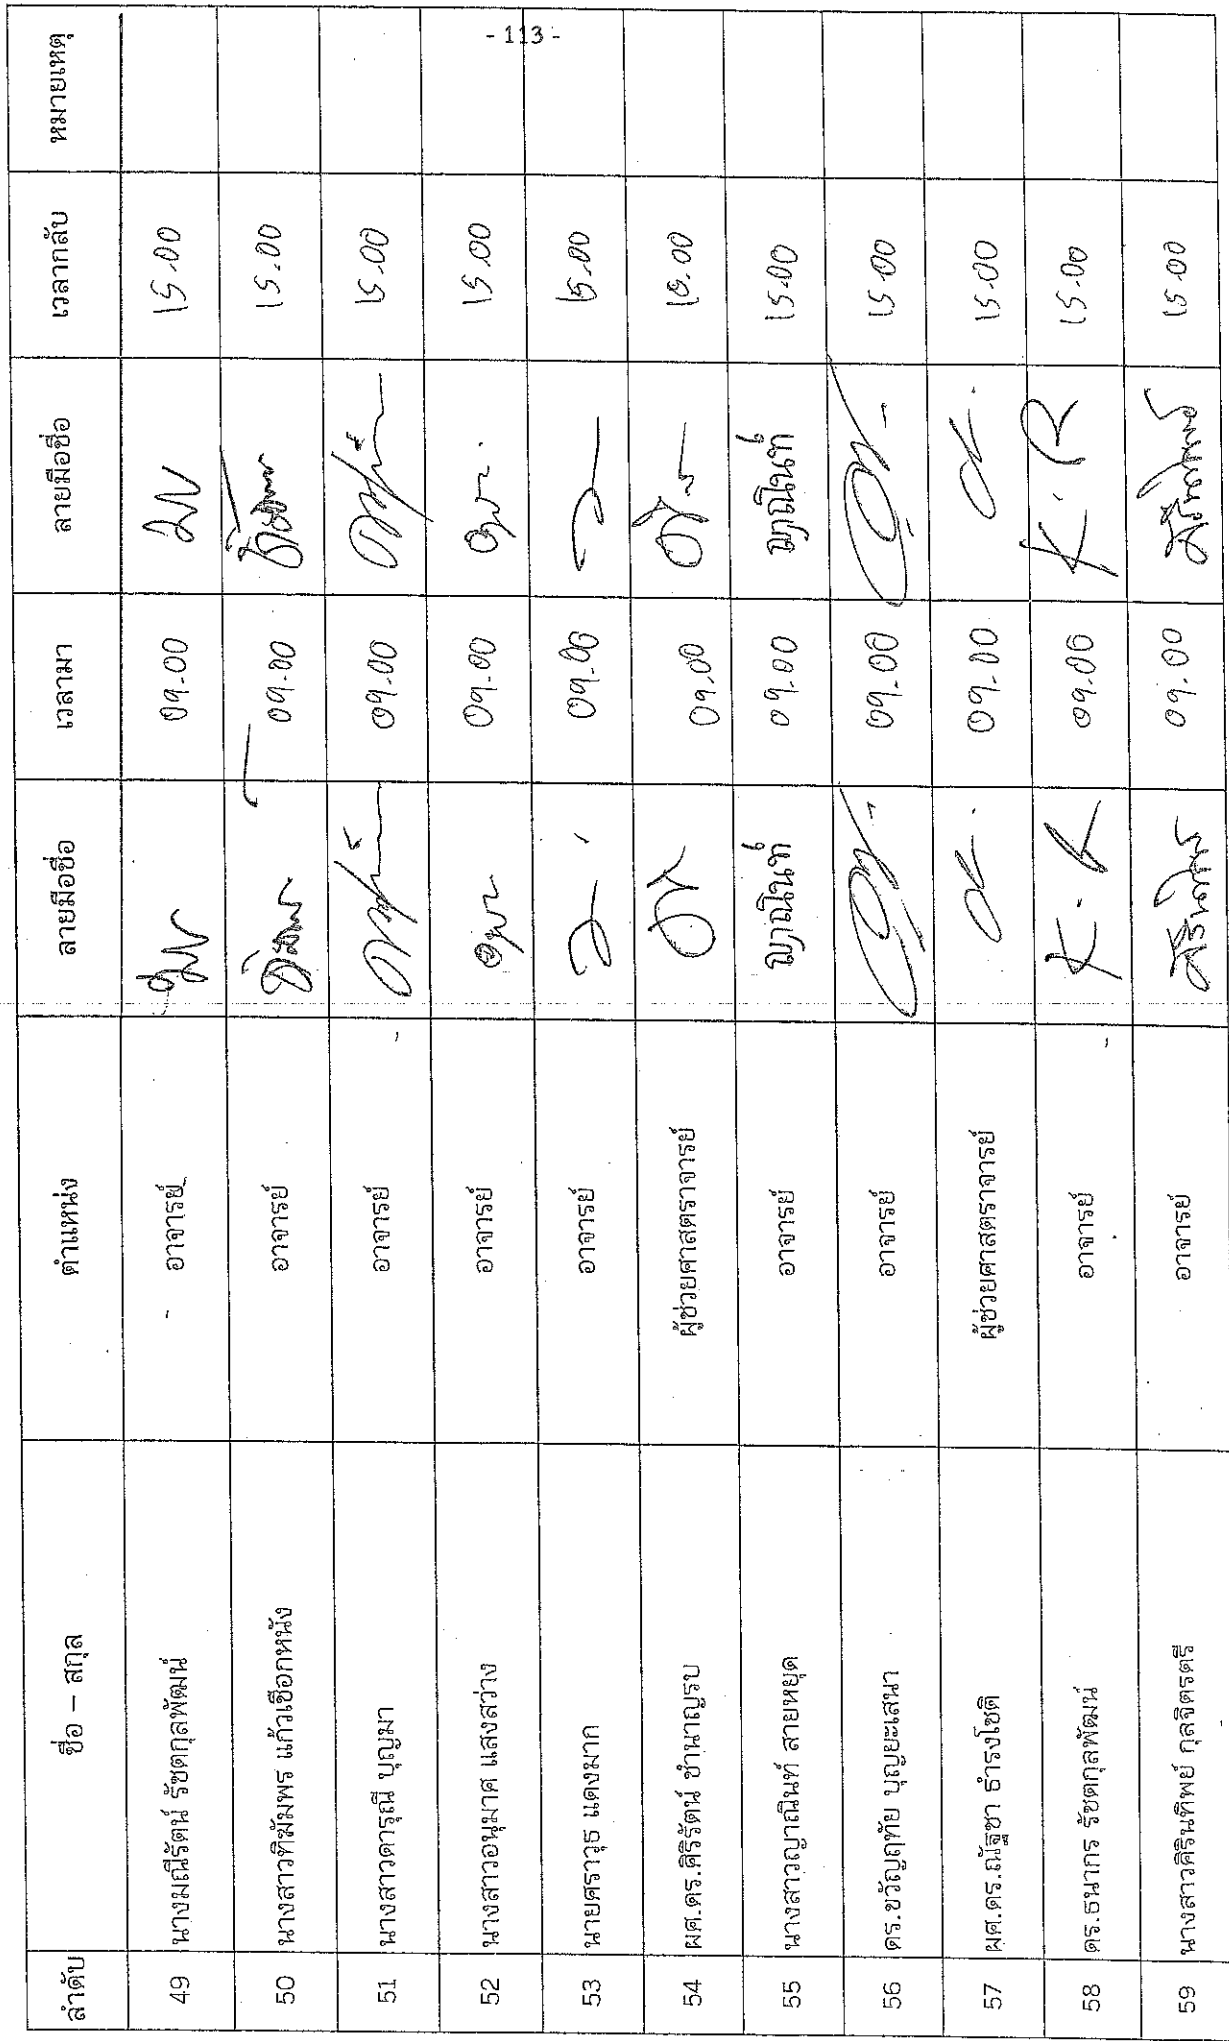 - 113 -
ลำดับ ชื่อ – สกุล ตำแหน่ง ลายมือชื่อ เวลามา ลายมือชื่อ เวลากลับ หมายเหตุ
49 นางมณีรัตน์ รัชตกุลพัฒน์ อาจารย์ 09.00 15.00
50 นางสาวทิฆัมพร แก้วเชือกหนัง อาจารย์ 09.00 15.00
51 นางสาวดารุณี บุญมา อาจารย์ 09.00 15.00
52 นางสาวอนุมาศ แสงสว่าง อาจารย์ 09.00 15.00
53 นายศราวุธ แดงมาก อาจารย์ 09.00 15.00
54 ผศ.ดร.ศิริรัตน์ ชำนาญรบ ผู้ช่วยศาสตราจารย์ 09.00 15.00
55 นางสาวญาณินท์ สายหยุด อาจารย์ ญาณินท์ 09.00 ญาณินท์ 15.00
56 ดร.ขวัญฤทัย บุญยะเสนา อาจารย์ 09.00 15.00
57 ผศ.ดร.ณัฐชา ธำรงโชติ ผู้ช่วยศาสตราจารย์ 09.00 15.00
58 ดร.ธนากร รัชตกุลพัฒน์ อาจารย์ K.R 09.00 K.R 15.00
59 นางสาวศิรินทิพย์ กุลจิตรตรี อาจารย์ ศิรินทิพย์ 09.00 ศิรินทิพย์ 15.00